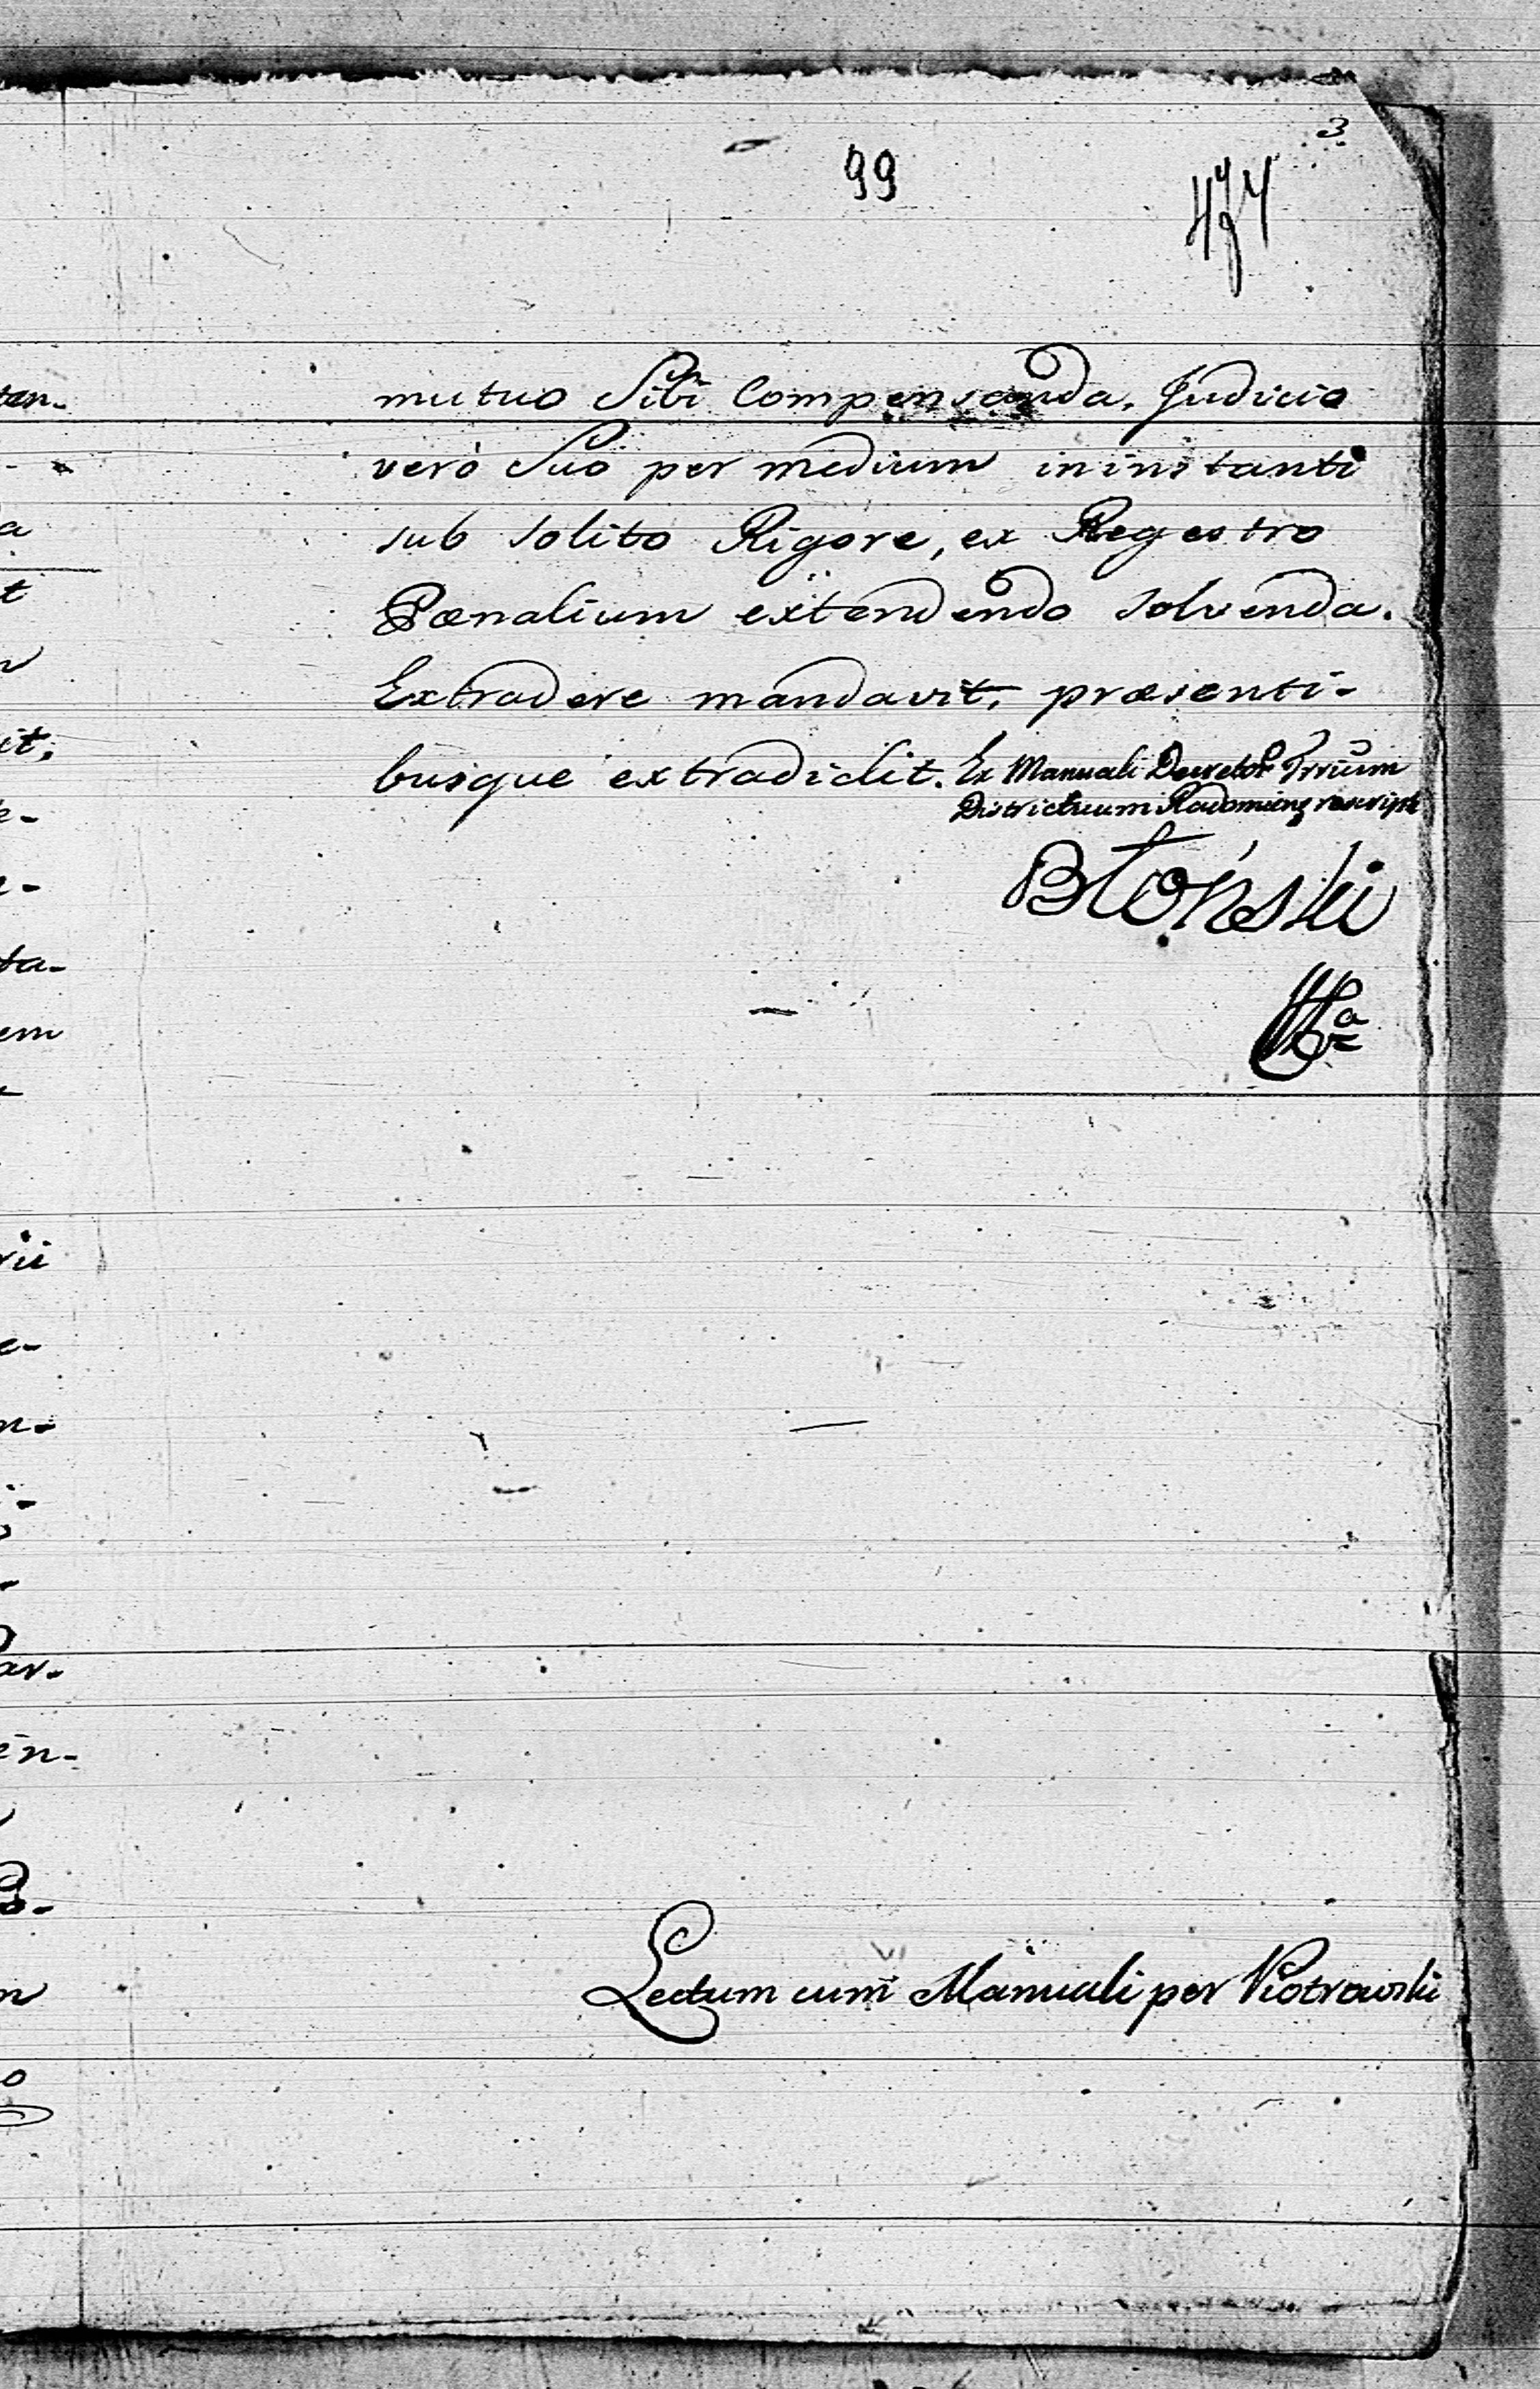 3
99
mutuo Sibi Compensanda. Judicio
verò Suo per medium in instanti
sub solito Rigore, ex Regestro
Pœnalium extendendo solvenda.
Extradere mandavit, præsenti-
busque extradidit. Ex Manuali Decretor Trrium
Districtuum Radomieng rescript
Błoński
Lectum cum Manuali per Piotrowski
ten-
a
t
it;
e-
ta-
em
rii
e-
n-
ar-
en-
o